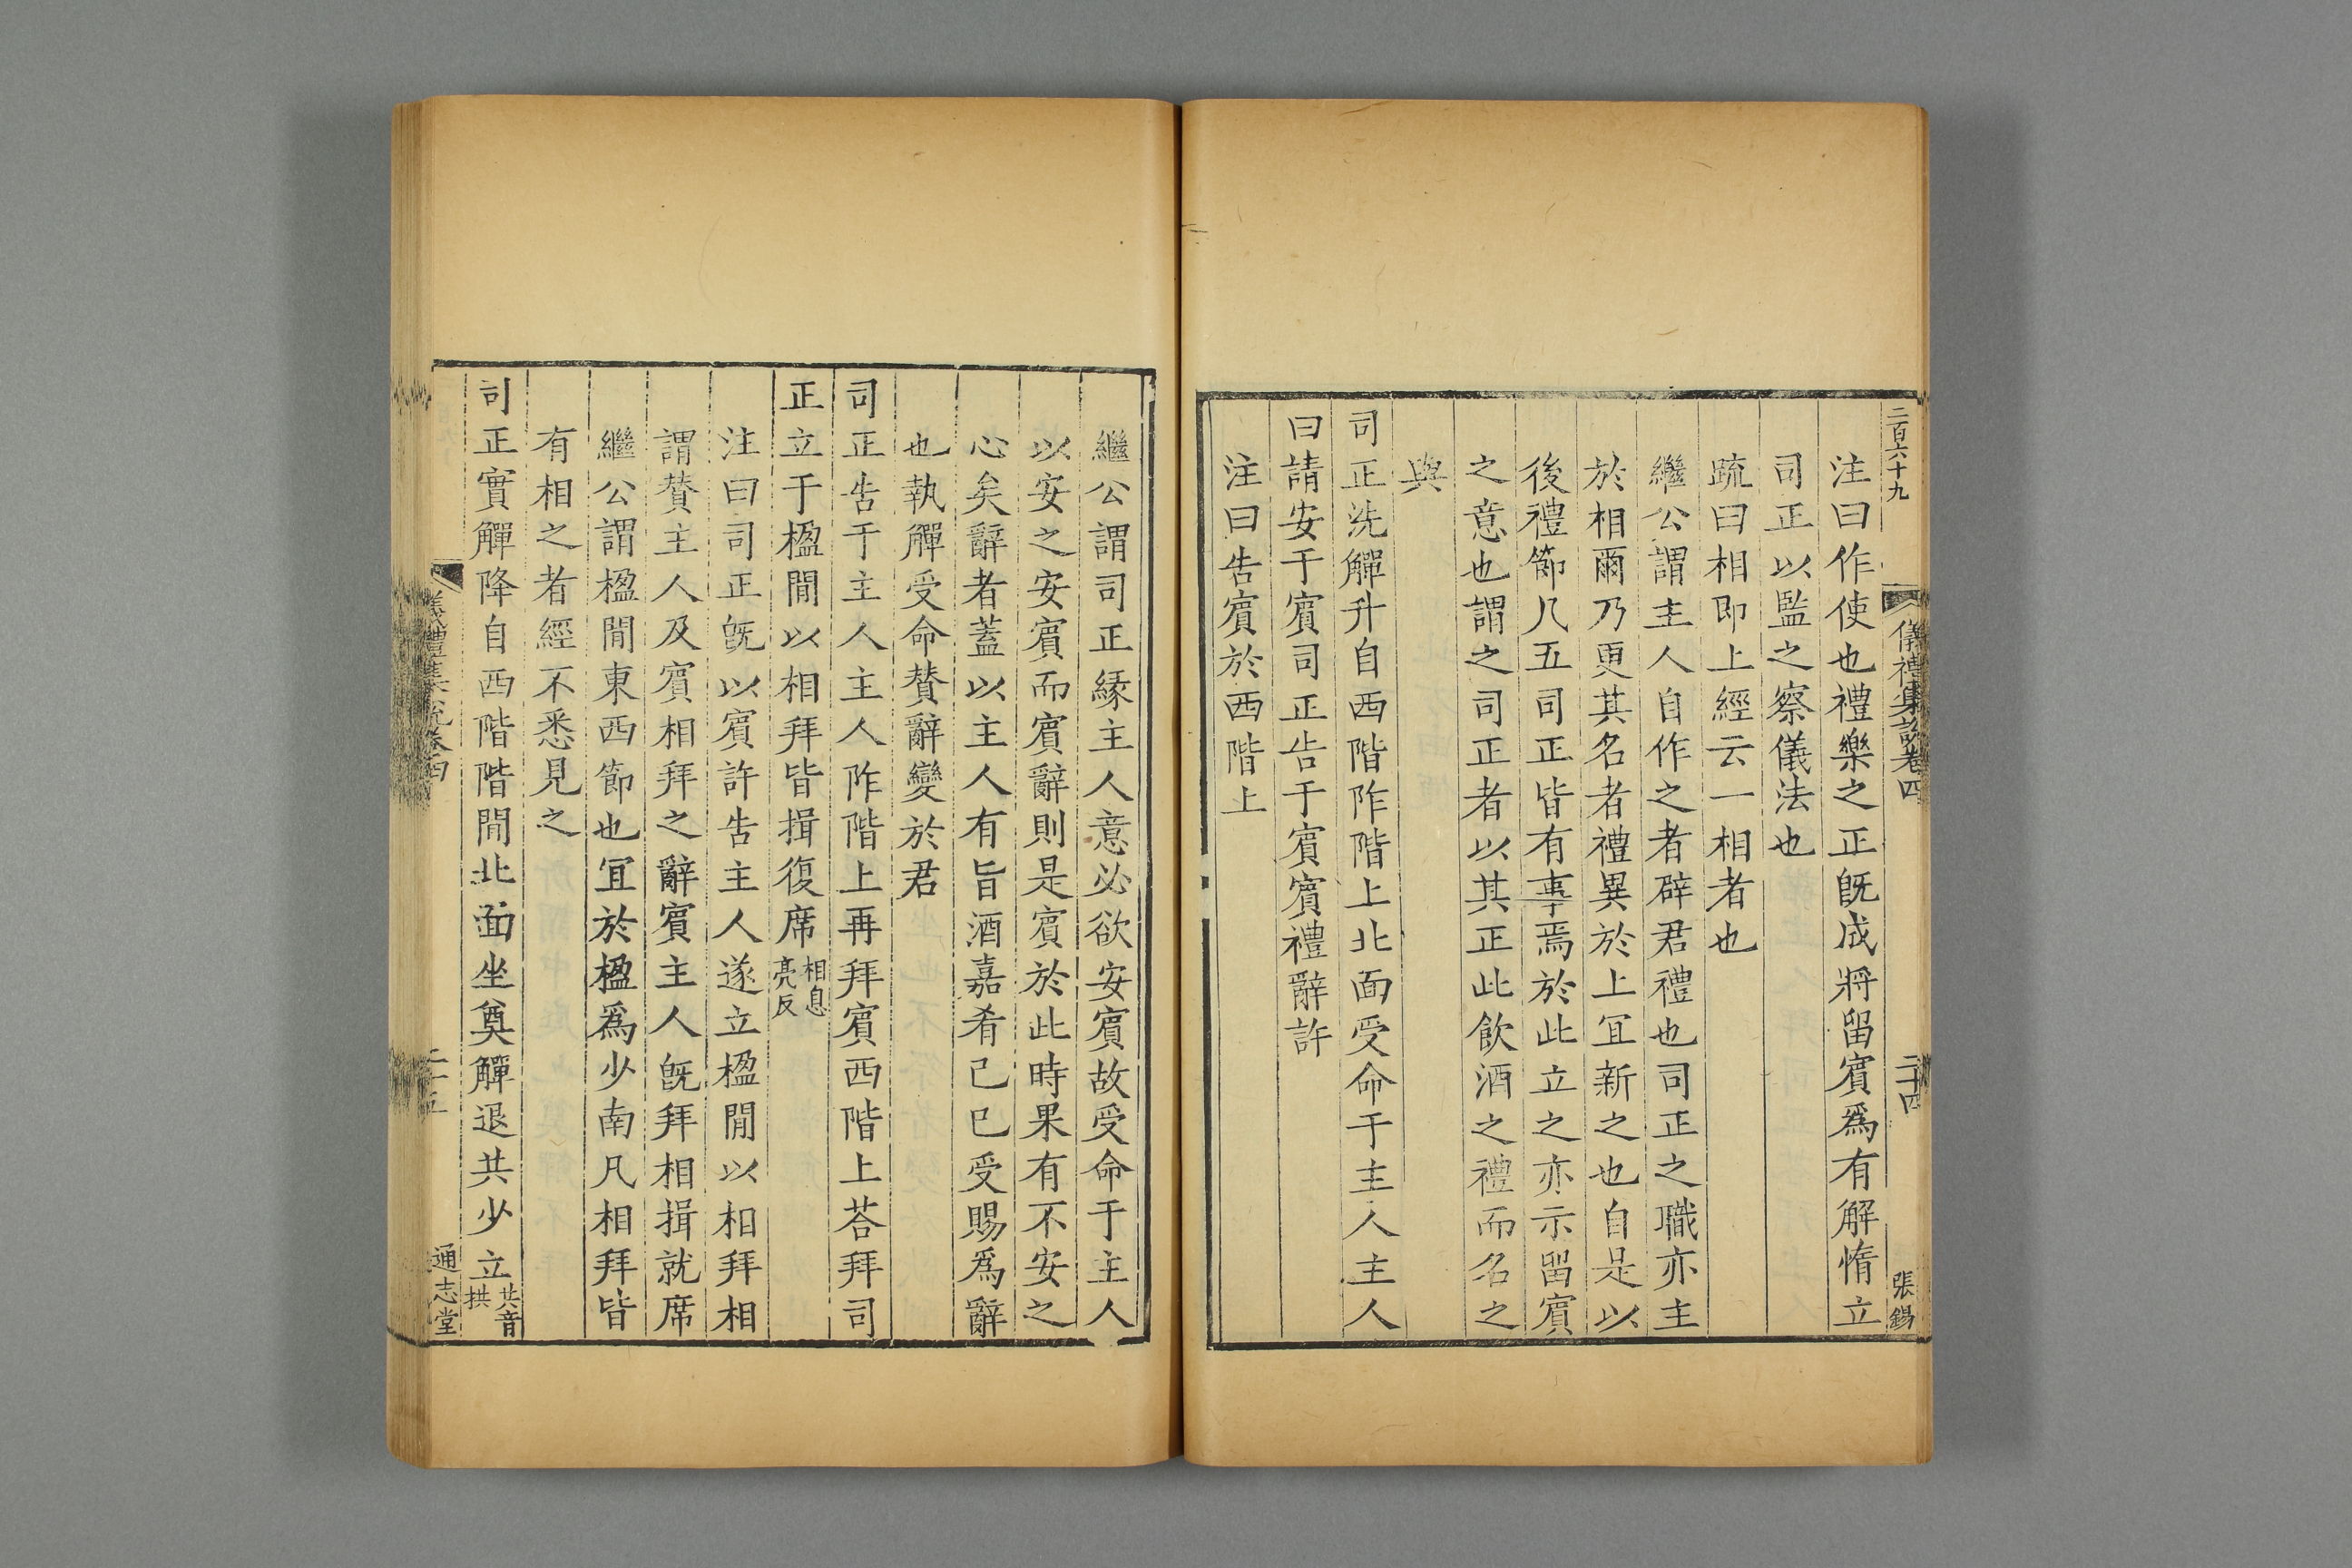 二百六十九
儀禮集說卷四
二十四
張錫
注曰作使也禮樂之正既成將留賓爲有解惰立
司正以監之察儀法也
疏曰相即上經云一相者也
繼公謂主人自作之者辟君禮也司正之職亦主
於相爾乃更其名者禮異於上冝新之也自是以
後禮節凡五司正皆有事焉於此立之亦示留賓
之意也謂之司正者以其正此飲酒之禮而名之
與
司正洗觶升自西階阼階上北面受命于主人主人
曰請安于賓司正告于賓賓禮辭許
注曰告賓於西階上
繼公謂司正緣主人意必欲安賓故受命于主人
以安之安賓而賓辭則是賓於此時果有不安之
心矣辭者蓋以主人有旨酒嘉肴己已受賜爲辭
也執觶受命贊辭變於君
司正告于主人主人阼階上再拜賓西階上荅拜司
正立于楹閒以相拜皆揖復席相息亮反
注曰司正既以賓許告主人遂立楹閒以相拜相
謂贊主人及賓相拜之辭賓主人既拜相揖就席
繼公謂楹閒東西節也冝於楹爲少南凡相拜皆
有相之者經不悉見之
司正實觶降自西階階閒北面坐奠觶退共少立共音拱
儀禮集說卷四
二十五
通志堂